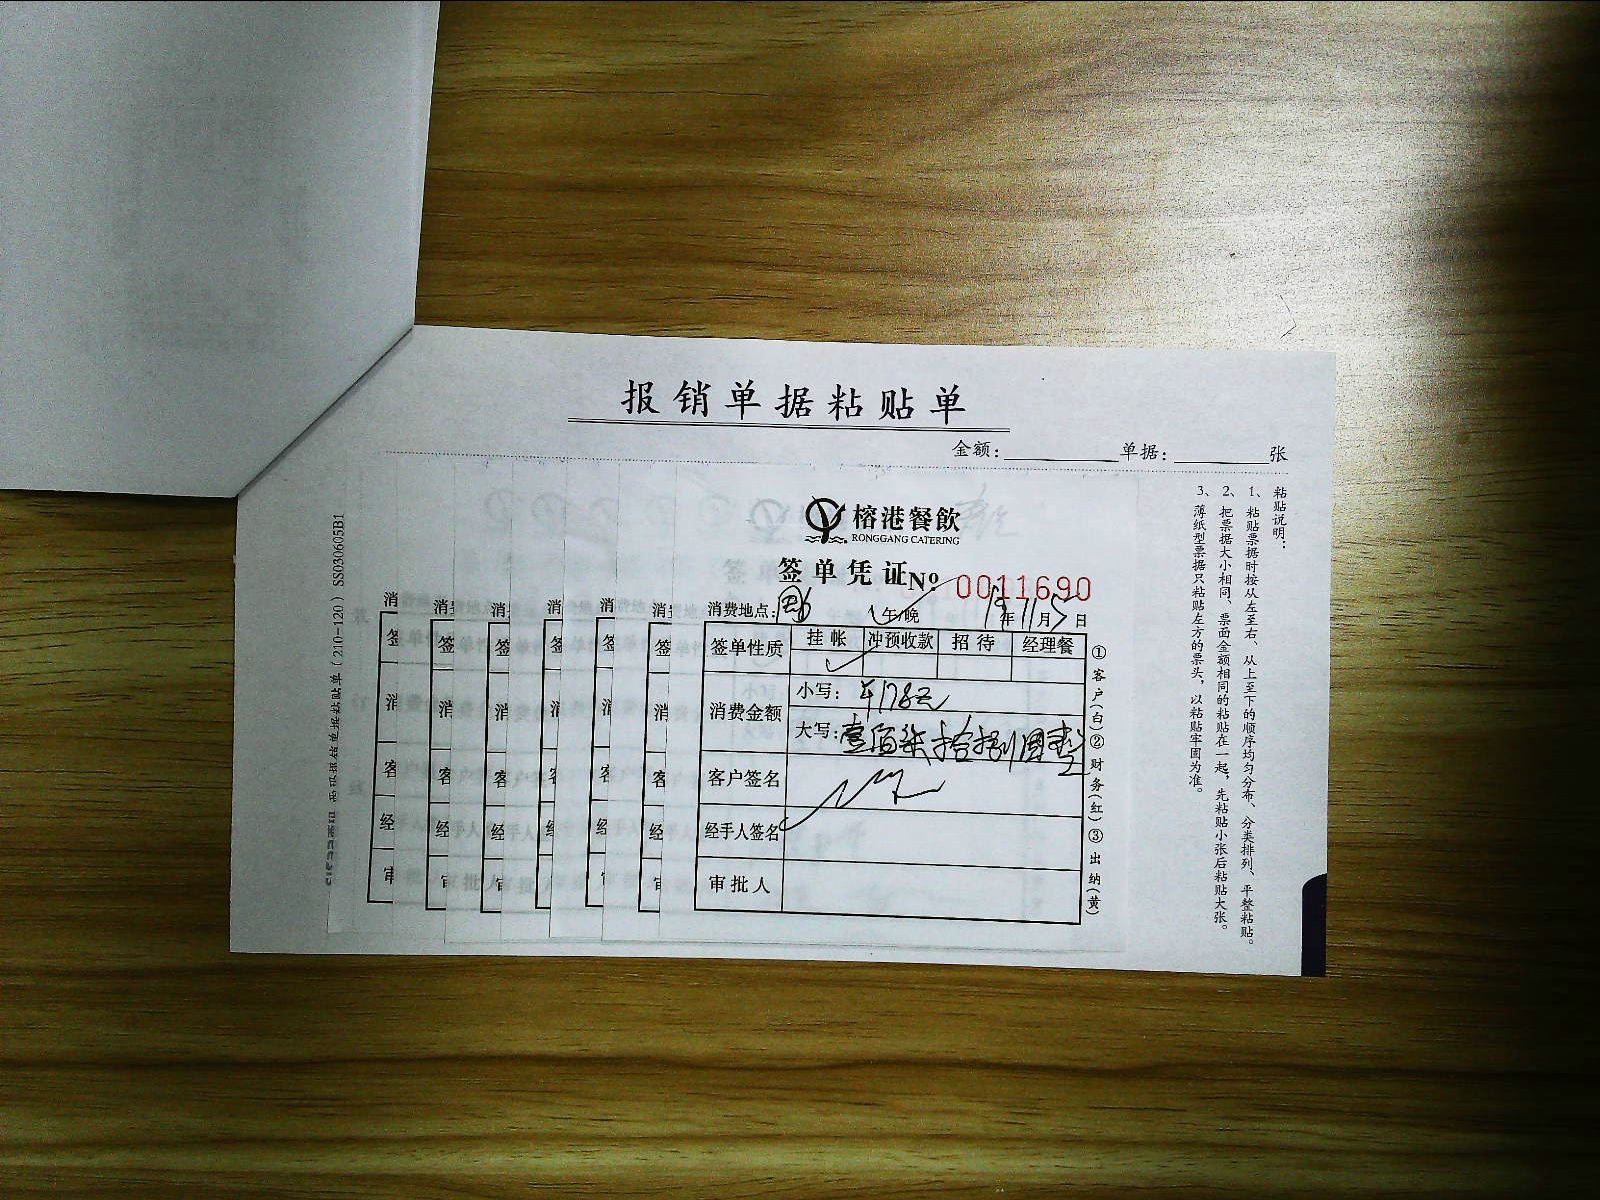 报销单据粘贴单
金额：
单据：
张
榕港餐飲
RONGGANG CATERING
签单凭证 No 0011690
消费地点：
午/晚
年11月5日
签单性质
挂帐
冲预收款
招待
经理餐
消费金额
小写：￥178元
大写：壹佰柒拾捌圆整
客户签名
经手人签名
审批人
①客户(白)②财务(红)③出纳(黄)
粘贴说明：
1、粘贴票据时按从左至右、从上至下的顺序均匀分布、分类排列、平整粘贴。
2、把票据大小相同、票面金额相同的粘贴在一起，先粘贴小张后粘贴大张。
3、薄纸型票据只粘贴左方的票头，以粘贴牢固为准。
报销单据粘贴单(210-120) SS030605B1
消
签
消
客
经
审
签
消
客
经
审
消
签
消
客
经
审
消
签
消
客
经
审
消
签
消
客
经
消
签
消
客
经
审